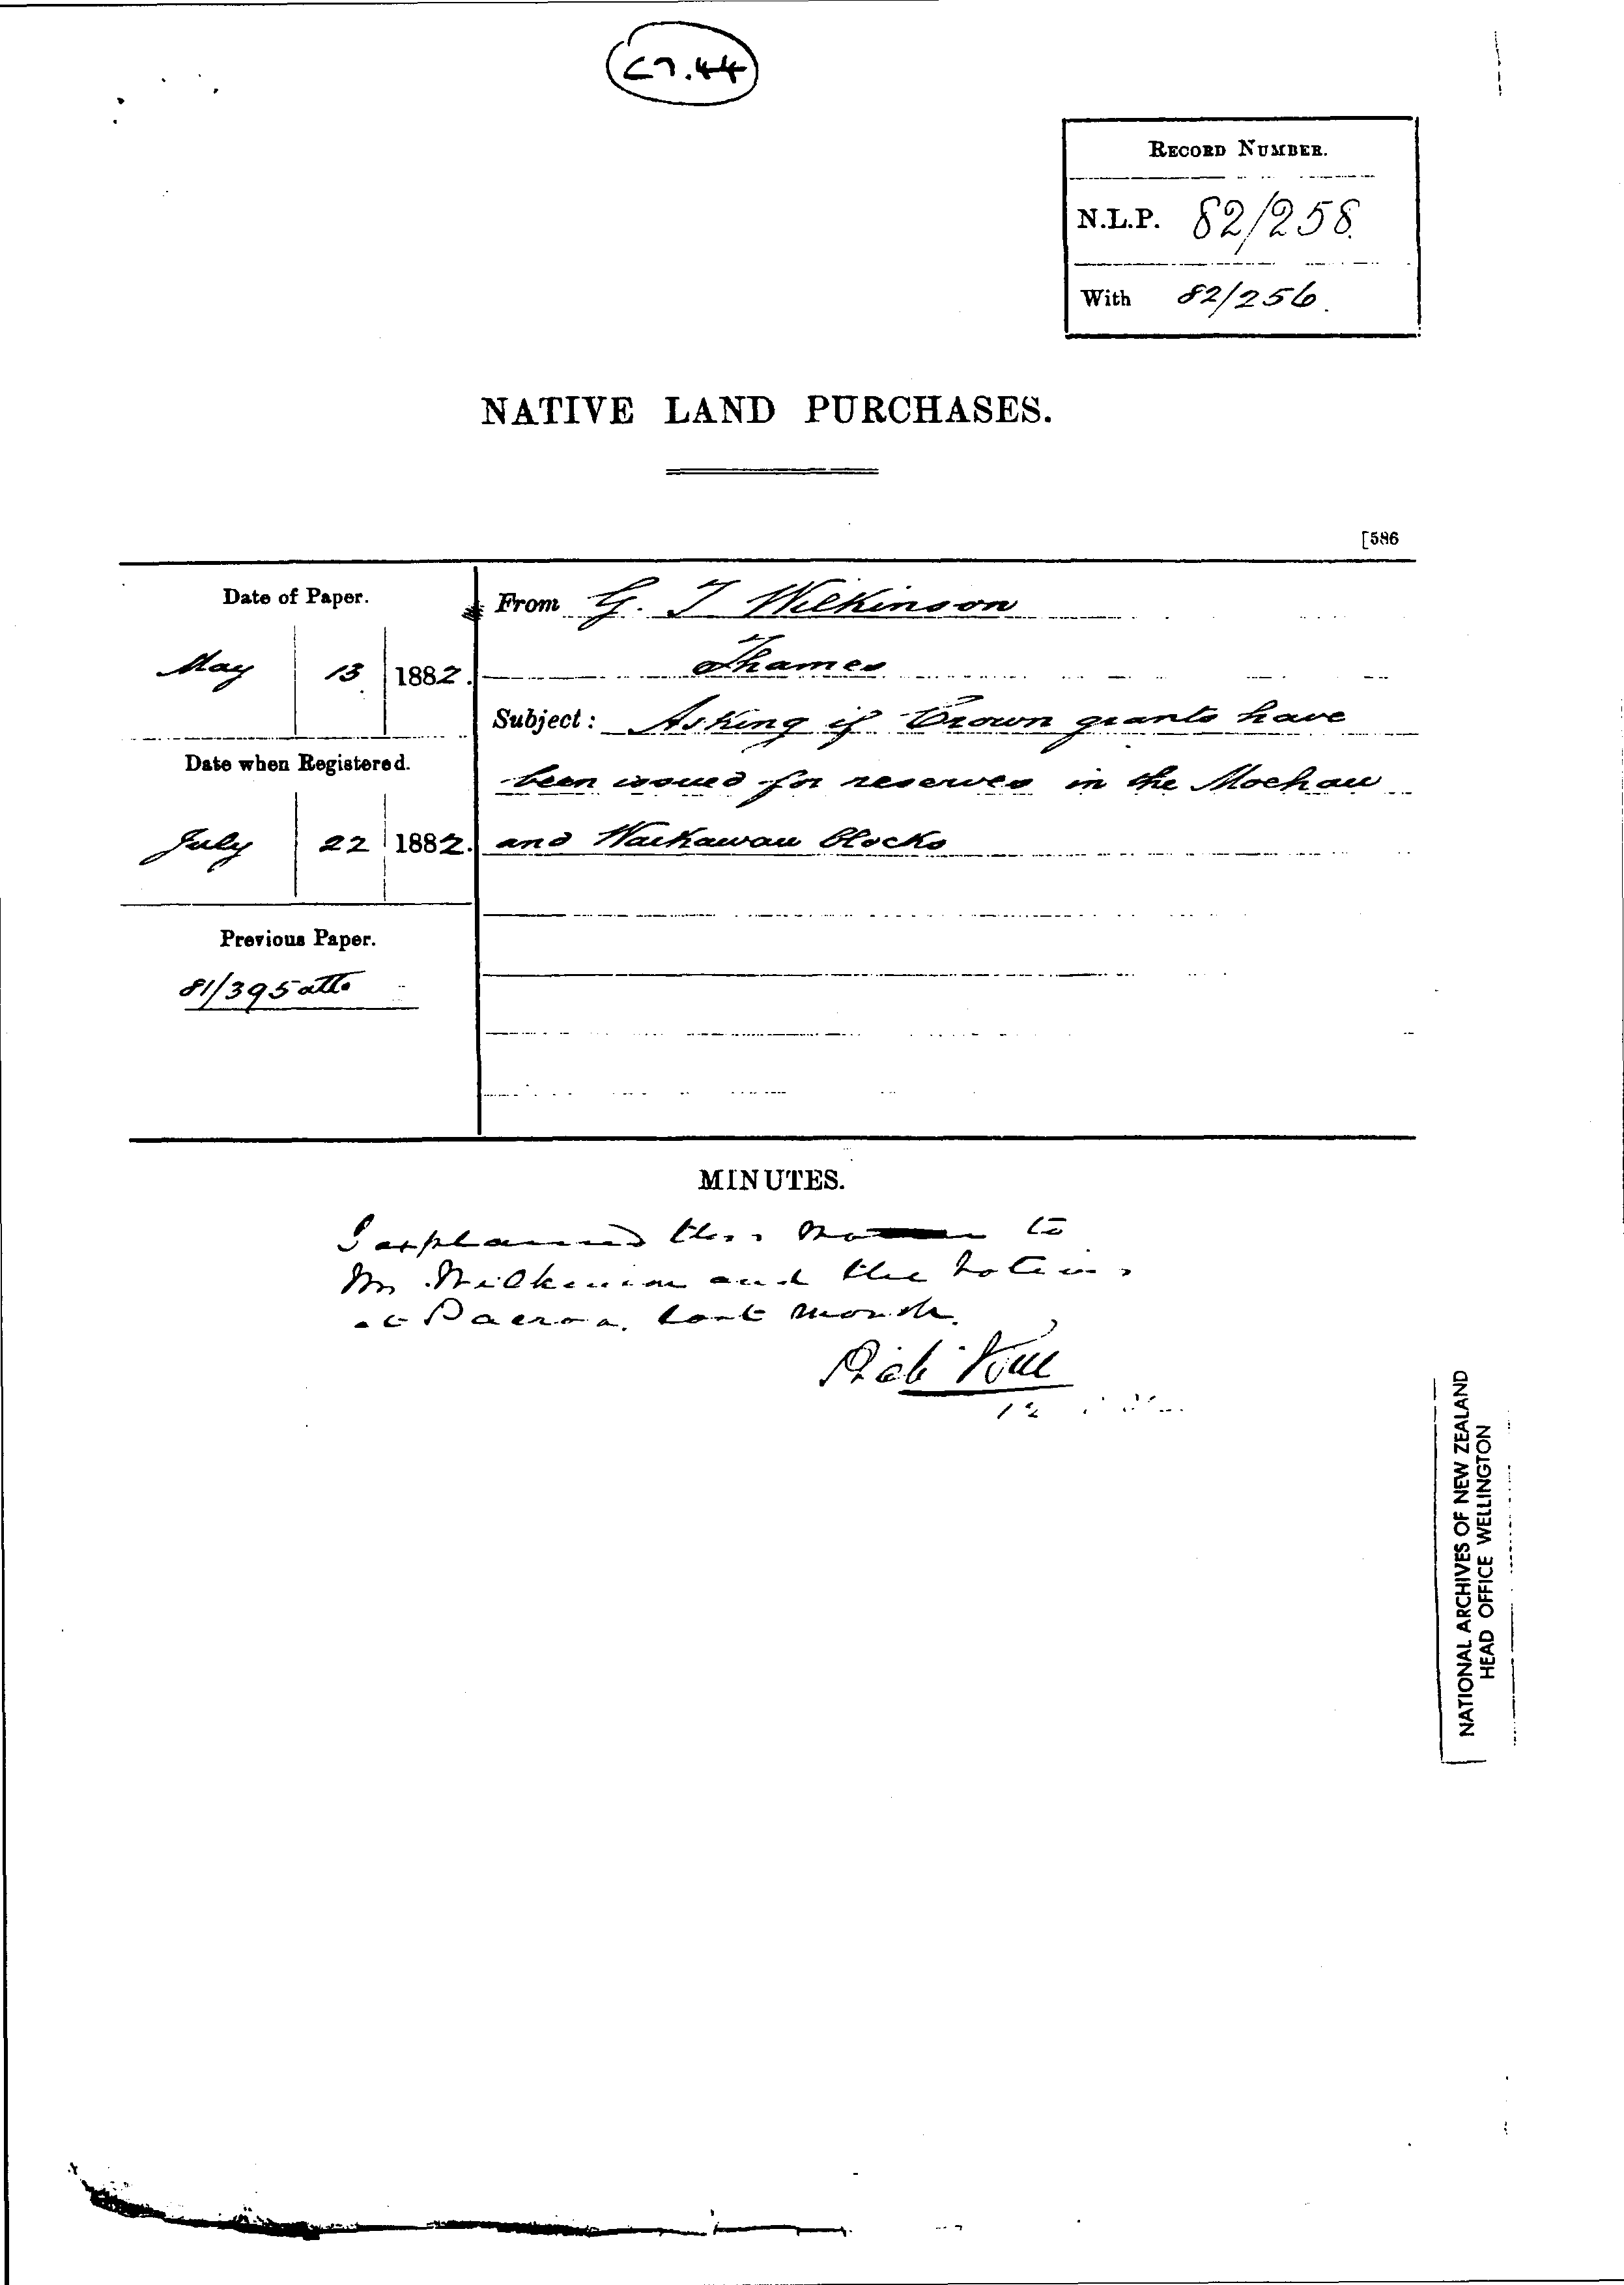 C7.44
RECORD NUMBER.
N.L.P. 82/258.
With 82/256.
NATIVE LAND PURCHASES.
[586
Date of Paper.
May 13 1882.
Date when Registered.
July 22 1882.
Previous Paper.
81/395 atto
From G. T Wilkinson
Thames
Subject: Asking if Crown grants have
been issued for reserves in the Moehau
and Waikawau blocks
MINUTES.
I explained this matter to
Mr Wilkinson and the Natives
at Paeroa last month.
Rich
12
NATIONAL ARCHIVES OF NEW ZEALAND
HEAD OFFICE WELLINGTON